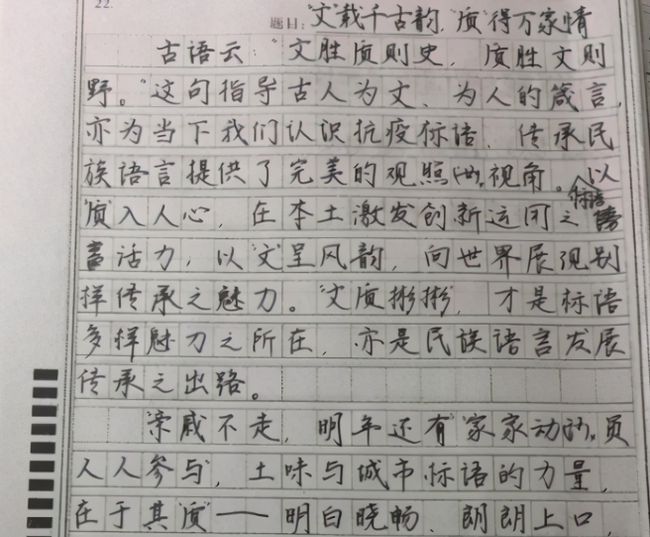 22.
题目："文"载千古韵，"质"得万家情
古语云："文胜质则史，质胜文则
野。"这句指导古人为文、为人的箴言，
亦为当下我们认识抗疫标语、传承民
族语言提供了完美的观照视角。以
"质"入人心，在本土激发创新运用之标语
活力，以"文"呈风韵，向世界展现别
样传承之魅力。"文质彬彬"，才是标语
多样魅力之所在，亦是民族语言发展
传承之出路。
"亲戚不走，明年还有""家家动员，
人人参与"，土味与城市标语的力量，
在于其"质"——明白晓畅、朗朗上口，